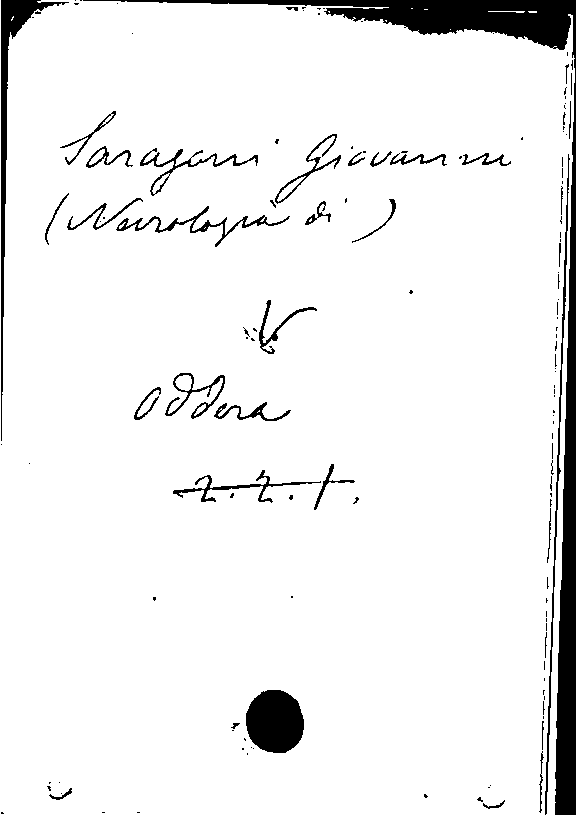 Saragoni Giovanni
(Necrologia di)
V.
Oddera
2.2.1.